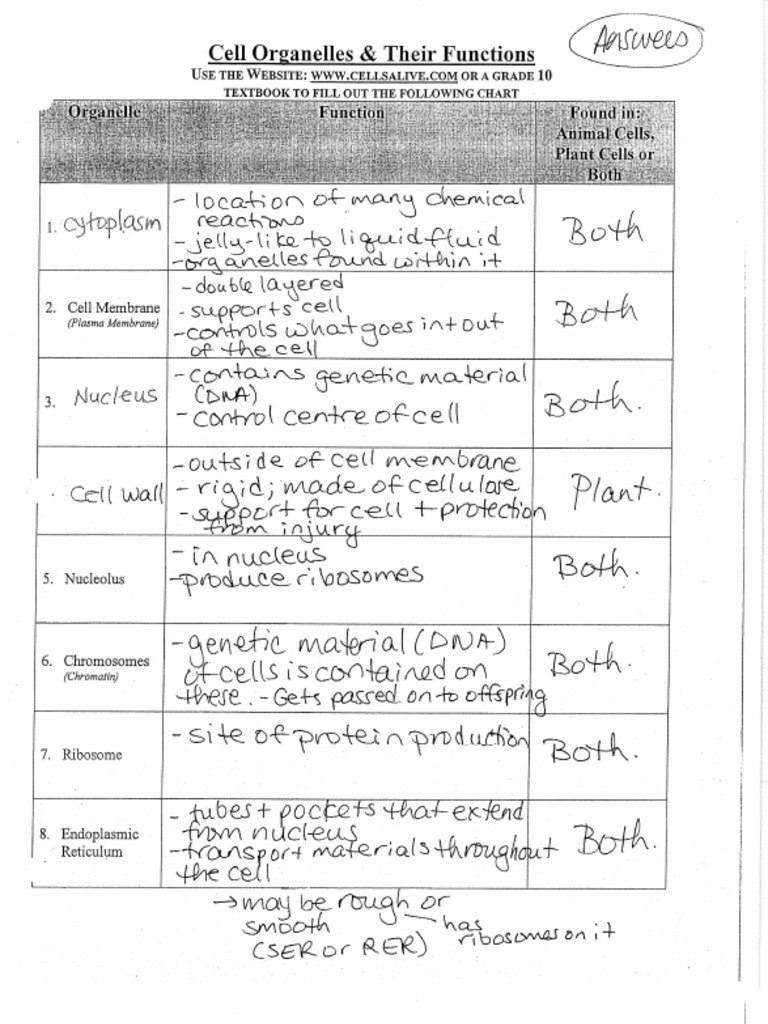 Answers
Cell Organelles & Their Functions
USE THE WEBSITE: WWW.CELLSALIVE.COM OR A GRADE 10
TEXTBOOK TO FILL OUT THE FOLLOWING CHART
Organelle
Function
Found in:
Animal Cells,
Plant Cells or
Both
1. Cytoplasm
- location of many chemical
reactions
- jelly-like to liquid fluid
- organelles found within it
Both
2. Cell Membrane
(Plasma Membrane)
- double layered
- supports cell
- controls what goes in + out
of the cell
Both
3. Nucleus
- contains genetic material
(DNA)
- control centre of cell
Both.
. Cell wall
- outside of cell membrane
- rigid; made of cellulose
- support for cell + protection
from injury
Plant.
5. Nucleolus
- in nucleus
- produce ribosomes
Both.
6. Chromosomes
(Chromatin)
- genetic material (DNA)
of cells is contained on
these. - Gets passed on to offspring
Both.
7. Ribosome
- site of protein production
Both.
8. Endoplasmic
Reticulum
- tubes + pockets that extend
from nucleus
- transport materials throughout
the cell
Both.
→ may be rough or
smooth
(SER or RER)
has
ribosomes on it